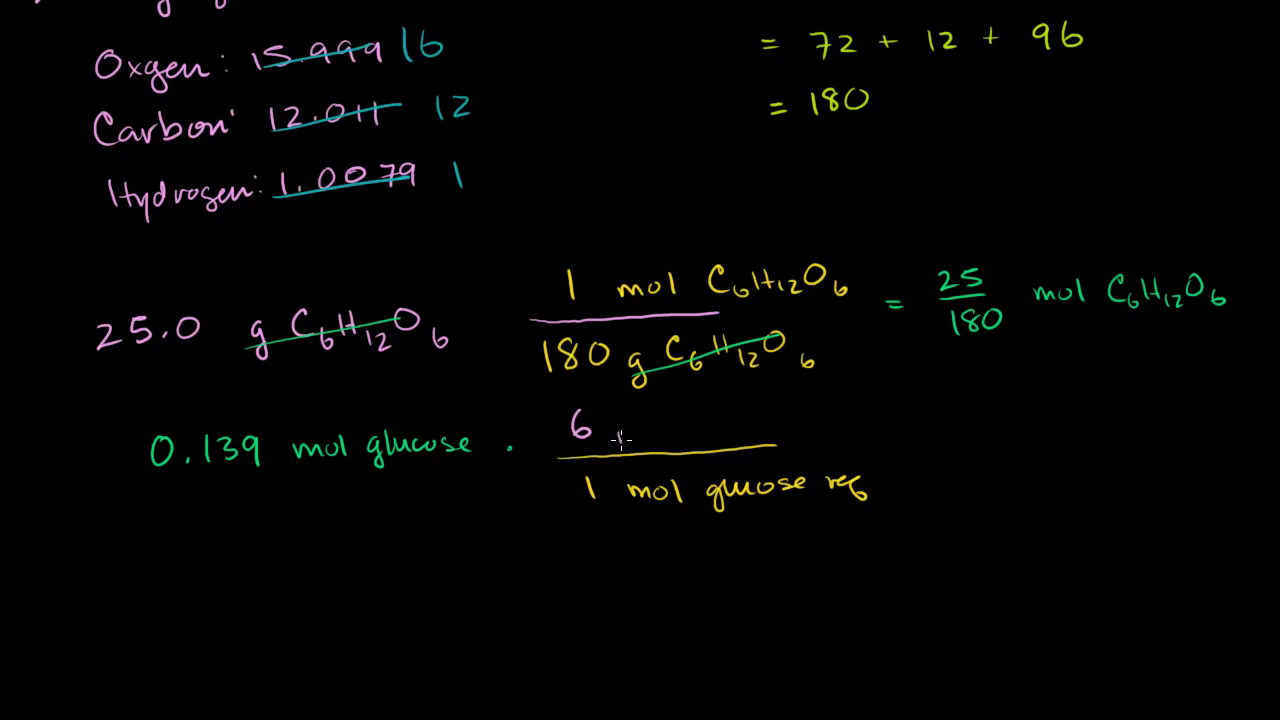 Oxgen: 15.999 16
= 72 + 12 + 96
Carbon: 12.011 12
= 180
Hydrogen: 1.0079 1
25.0 g C₆H₁₂O₆
1 mol C₆H₁₂O₆
180 g C₆H₁₂O₆
= 25/180 mol C₆H₁₂O₆
0.139 mol glucose ·
6
1 mol glucose req